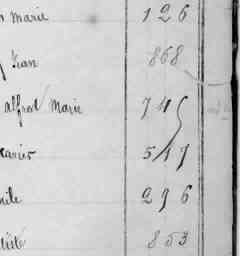 Marie 126
Jean 868
alfred Marie 745
Xavier 517
296
853